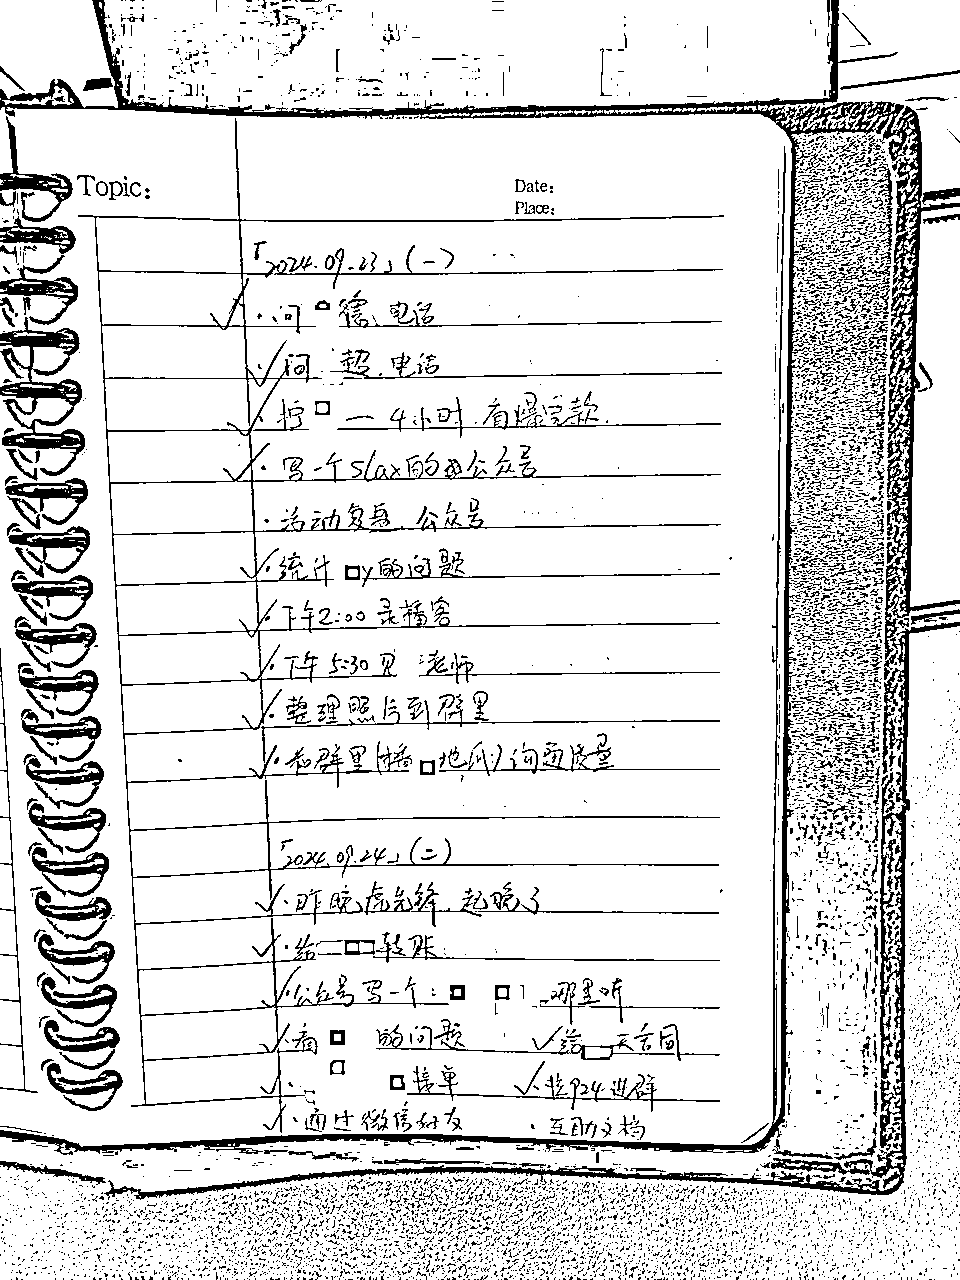 Topic:
Date:
Place:
「2024.09.23」(一)
✓ · 问 德、电话
✓ 问 超 电话
✓ · 一 4小时.有爆 款.
✓ · 写一个slax的 公众号
· 活动复盘 公众号
✓ · 统计 y的问题
✓ · 下午2:00 录播客
✓ · 下午 5:30 见 老师
✓ · 整理照片到群里
✓ · 和群里(播 地瓜)沟通质量
「2024.09.24」(二)
✓ · 昨晚虎先锋 起晚了
✓ · 给 转账
✓ · 公众号写一个: 哪里听
✓ · 看 的问题 ✓ 给 合同
✓ · 接单 ✓ · 924进群
✓ · 通过微信好友 · 互助文档